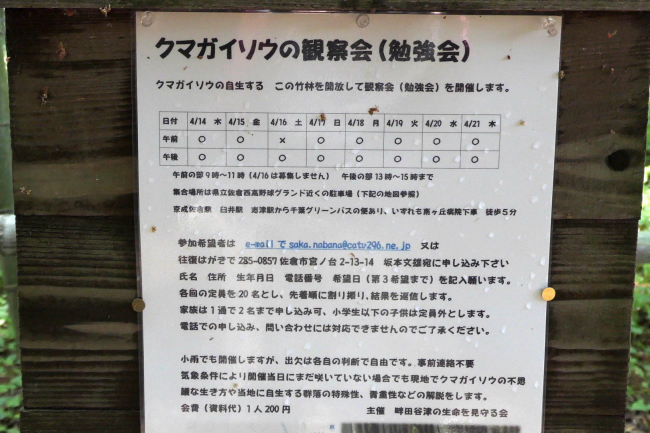 クマガイソウの観察会（勉強会）
クマガイソウの自生する この竹林を開放して観察会（勉強会）を開催します。
日付 4/14 木 4/15 金 4/16 土 4/17 日 4/18 月 4/19 火 4/20 水 4/21 木
午前 ○ ○ × ○ ○ ○ ○ ○
午後 ○ ○ ○ ○ ○ ○ ○ ○
午前の部９時～11時（4/16は募集しません） 午後の部13時～15時まで
集合場所は県立佐倉西高野球グランド近くの駐車場（下記の地図参照）
京成佐倉駅 臼井駅 志津駅から千葉グリーンバスの便あり、いずれも南ヶ丘病院下車 徒歩５分
参加希望者は e-mailで saka.nobana@catv296.ne.jp 又は
往復はがきで285-0857佐倉市宮ノ台2-13-14 坂本文雄宛に申し込み下さい
氏名 住所 生年月日 電話番号 希望日（第３希望まで）を記入願います。
各回の定員を20名とし、先着順に割り振り、結果を返信します。
家族は１通で２名まで申し込み可、小学生以下の子供は定員外とします。
電話での申し込み、問い合わせには対応できませんのでご了承ください。
小雨でも開催しますが、出欠は各自の判断で自由です。事前連絡不要
気象条件により開催当日にまだ咲いていない場合でも現地でクマガイソウの不思
議な生き方や当地に自生する群落の特殊性、貴重性などの解説をします。
会費（資料代）１人200円 主催 畔田谷津の生命を見守る会